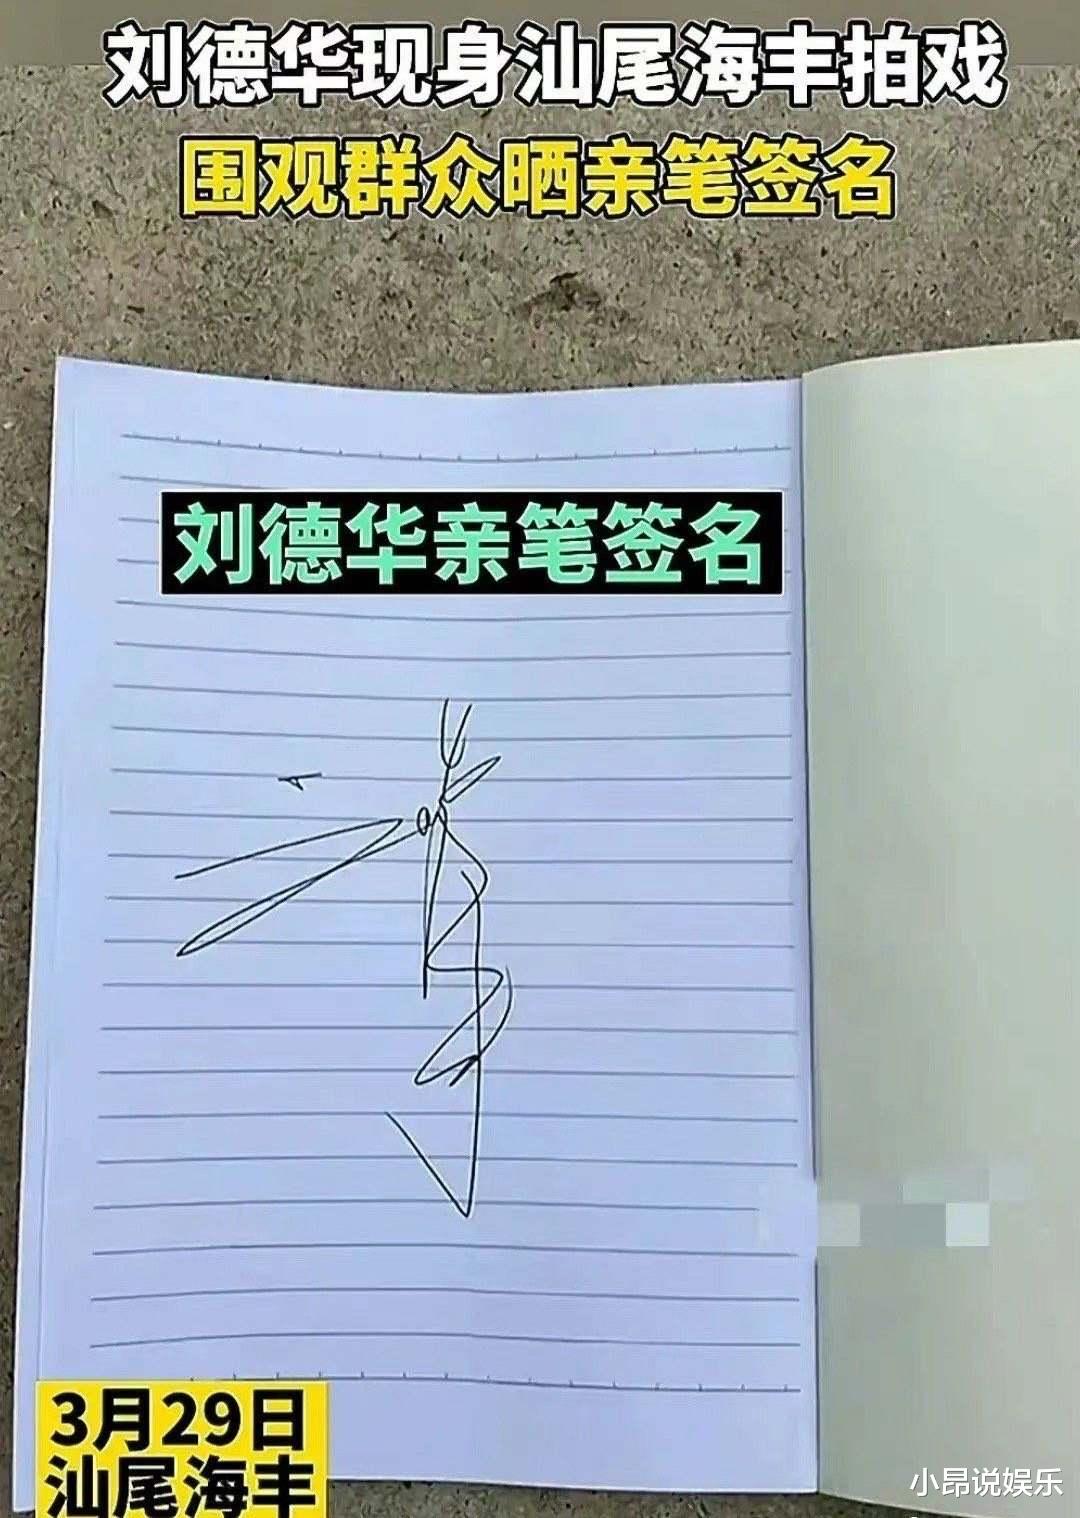 刘德华现身汕尾海丰拍戏
围观群众晒亲笔签名
刘德华亲笔签名
3月29日
汕尾海丰
小昂说娱乐